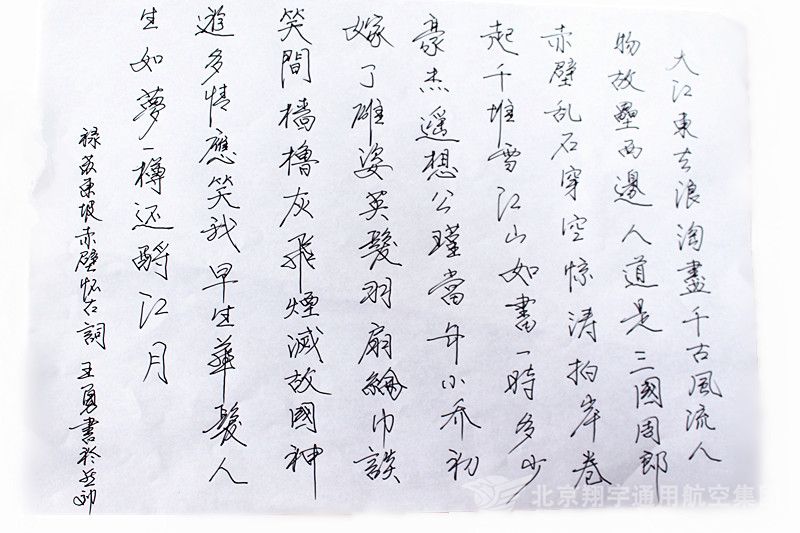 大江東去浪淘盡千古風流人
物故壘西邊人道是三國周郎
赤壁乱石穿空惊涛拍岸卷
起千堆雪江山如畫一時多少
豪杰遥想公瑾當年小乔初
嫁了雄姿英髮羽扇綸巾談
笑間檣櫓灰飛煙滅故國神
遊多情應笑我早生華髮人
生如夢一樽还酹江月
禄苏东坡赤壁怀古詞 王勇書於
北京翔宇通用航空集团